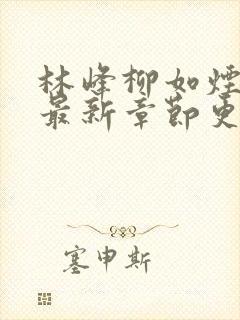 林峰柳如煙
最新章節更
塞申斯